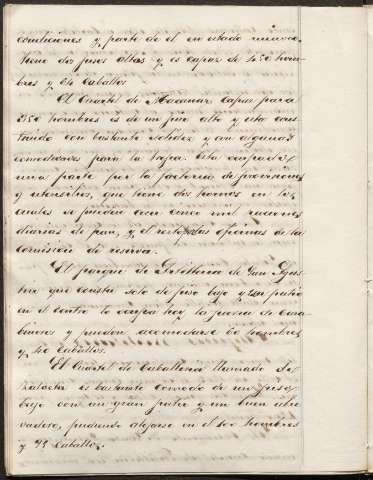 condiciones y parte de el en estado ruinoso
tiene dos pisos altos y es capaz de 450 hom-
bres y 64 caballos.
El Cuartel de capaz para
350 hombres es de un piso alto y esta cons-
truido con bastante solidez y con algunas
comodidades para la tropa. Esta ocupado
una parte por la factoria de provisiones
y utensilios, que tiene dos hornos en los
cuales se pueden cocer cinco mil raciones
diarias de pan, y el resto las oficinas de la
comision de reserva.
El parque de Artilleria de San Agus
tin que consta solo de piso bajo y un patio
en el centro lo ocupa hoy la fuerza de Cara-
bineros y pueden acomodarse 60 hombres
y 40 caballos.
El Cuartel de Caballeria llamado de
es bastante comodo de un piso
bajo con un gran patio y un buen abre
vadero, pudiendo alojarse en el 100 hombres
y 73 Caballos.